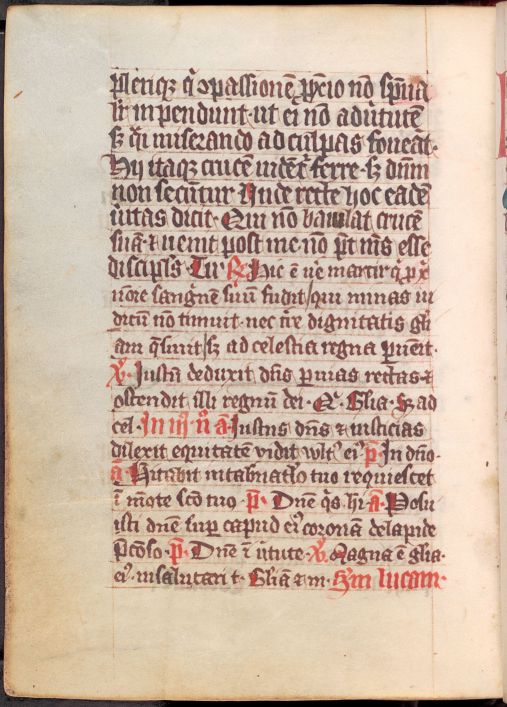 plerique qͥ ↄpassionē p̄xio nō sp̄ua
lit̓ inpendunt · ut ei nō ad ūtutē
sꝫ qͥ miserando ad culpas foueāt ·
Hij itaqꝫ crucē uident̓ ferre · sꝫ dn̄m
non secūtur · Unde recte hoc eadē
ūitas dicit · Qui nō baiulat crucē
suā · ⁊ uenit post me · nō pt̄ ms̄ esse
discipl̓s Tu ꝶ Hic ē ūe martir qͥ p xͥ
nōre sangͥnē suū fudit / qui minas iu
dicū nō timuit · nec tr̄re dignitatis gl̓i
am qͣsiuit / sꝫ ad celestia regna ꝑuēit ·
℣ · Justū deduxit dn̄s ꝑ uias rectas · ⁊
ostendit illi regnū dei · Q͛ · Gl̓ia · Sꝫ ad
cel · In iij n̄ a Justus dn̄s ⁊ iusticias
dilexit equitatē vidit wlt᷒ ei᷒ p̄ · In dn̄o ·
a Habitabit in tab̓nac̓lo tuo requiescet
ī mōte sc̄o tuo · p̄ · Dn̄e qͥs hi · a · Posu
isti dn̄e sup̓ capud ei᷒ coronā de lapide
p̄cōso · p̄ · Dn̄e ī ūtute · ℣ · Magna ē gl̓ia ·
ei᷒ · in salutari t · Gl̓iā ⁊ m · Sc̄m lucam ·